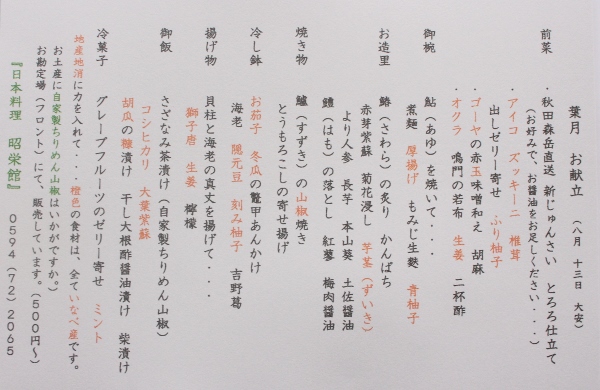 葉月 お献立 (八月 十三日 大安)
前菜 ・秋田森岳直送 新じゅんさい とろろ仕立て
(お好みで、お醤油をお足しください・・・・)
・アイコ ズッキーニ 椎茸
出しゼリー寄せ ふり柚子
・ゴーヤの赤玉味噌和え 胡麻
・オクラ 鳴門の若布 生姜 二杯酢
御椀 鮎(あゆ)を焼いて・・・
煮麺 厚揚げ もみじ生麩 青柚子
お造里 鰆(さわら)の炙り かんぱち
赤芽紫蘇 菊花浸し 芋茎(ずいき)
より人参 長芋 本山葵 土佐醤油
鱧(はも)の落とし 紅蓼 梅肉醤油
焼き物 鱸(すずき)の山椒焼き
とうもろこしの寄せ揚げ
冷し鉢 お茄子 冬瓜の鼈甲あんかけ
海老 隠元豆 刻み柚子 吉野葛
揚げ物 貝柱と海老の真丈を揚げて・・・
獅子唐 生姜 檸檬
御飯 さざなみ茶漬け(自家製ちりめん山椒)
コシヒカリ 大葉紫蘇
胡瓜の糠漬け 干し大根酢醤油漬け 柴漬け
冷菓子 グレープフルーツのゼリー寄せ ミント
地産地消に力を入れて・・・橙色の食材は、全ていなべ産です。
お土産に自家製ちりめん山椒はいかがですか。
お勘定場(フロント)にて、販売しています。(500円~)
『日本料理 昭栄館』 0594(72)2065